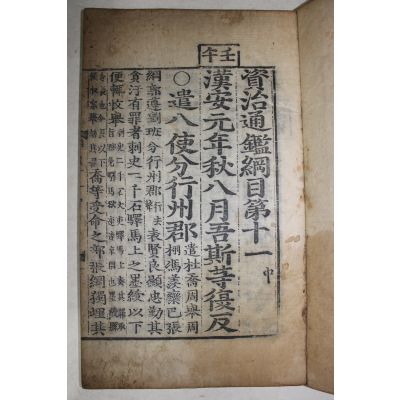 資治通鑑綱目第十一 中
壬午
漢安元年秋八月吾斯等復反
○遣八使分行州郡 遣杜喬周舉周
栩馮羨欒巴張
綱郭遵劉班分行州郡 表賢良顯忠勤其
貪汙有罪者刺史二千石驛馬上之墨綬以下
便輒收舉
喬等受命之部張綱獨埋其